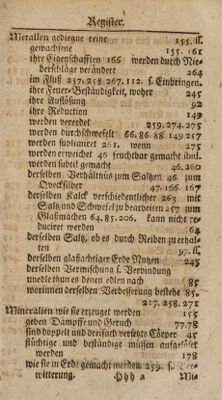 Register.
Metallen gediegne reine 155. ff.
gewachsene 155. 161
ihre Eigenschafften 166 werden durch Nie-
derschläge verändert 264
im Fluß 257. 258. 267. 112. s. Einbringen.
ihre Feuer-Beständigkeit, woher 245
ihre Auflösung 92
ihre Reduction 149
werden veredlet 259. 274. 275
werden durchschwefelt 66. 86. 88 149. 257
werden sublimiret 261. wenn 275
werden erweichet 46 fruchtbar gemacht ibid.
werden subtil gemacht 46. 260
derselben Verhältnüs zum Saltzen 46 zum
Quecksilber 47. 166. 167
derselben Kalck verschiedentlicher 263 mit
Saltz und Schwefel zu bearbeiten 257 zum
Glaßmachen 64. 85. 206. kann nicht re-
duciret werden 64
derselben Saltz, ob es durch Reiben zu erhal-
ten 97. ff.
derselben glaßachtiger Erde Nutzen 245
derselben Vermischung s. Verbindung
unedle thun es denen edlen nach 85
worinnen derselben Verbesserung bestehe 85.
217. 258. 271
Mineralien wie sie erzeuget werden 155
geben Dämpffe und Geruch 77. 78
sind doppelt und dreifach versetzte Cörper 45
flüchtige und beständige müssen aufgelöset
werden 178
wie sie in Erde gemacht werden 259. s. Ver-
witterung.
Hhh 2 Mi-